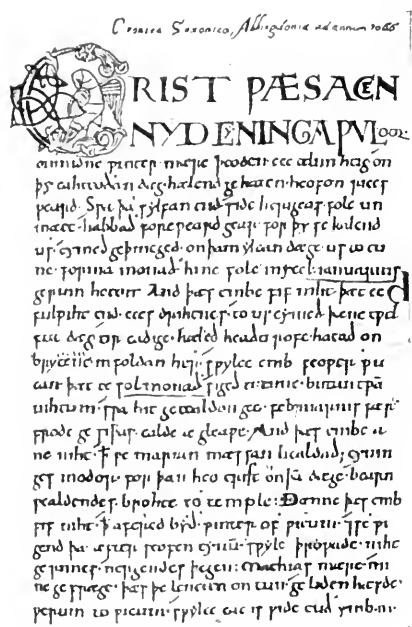 Cronica Saxonica, Abbingdoniæ ad annum 1066
CRIST ǷÆS ACEN
NYD CYNINGA ǷUL dor
on midne ƿinter · mære þeoden ece ælmihtig · on
þy eahteoðan dæg · hælend ge haten · heofon rices
ƿeard. Sƿa þa sylfan tiid side herigeas · folc un
mæte · habbað foreƿeard gear · for þy se kalend
us cymeð geþincged · on þam ylcan dæge · us to tu
ne · forma monað · hine folc mycel · ianuarius
gerum heton And þæs embe fif niht · þæt te
fulƿiht tiid · eces drihtnes · to us cymeð · þæne tƿel
fta dæg · tir eadige · hæleð heaðu rofe · hatað on
brytene · in foldan her · sƿylce emb feoƿer ƿu
can þæt te solmonað · sigeð to tune · butan tƿam
nihtum · sƿa hit ge tealdon geo · februarius fær ·
frode ge siþas · ealde æ gleaƿe · And þæs embe a
ne niht · ꝥ ƿe marian mæssan healdað; cynin
ges modor · for þan heo crist on þam dæge · bearn
ƿealdendes · brohte to temple : Ðænne þæs emb
fif niht · ꝥ afered byð · ƿinter of ƿicum · ⁊ se ƿi
gend þa · æfter seofentynum · sƿylt þroƿade · niht
gerimes · nergendes þegen : mathias mære · mi
ne ge fræge · þæs þe lencten on tun · ge liden hæfde ·
ƿerum to ƿicum · sƿylce eac is ƿide cuð · ymb · iii ·